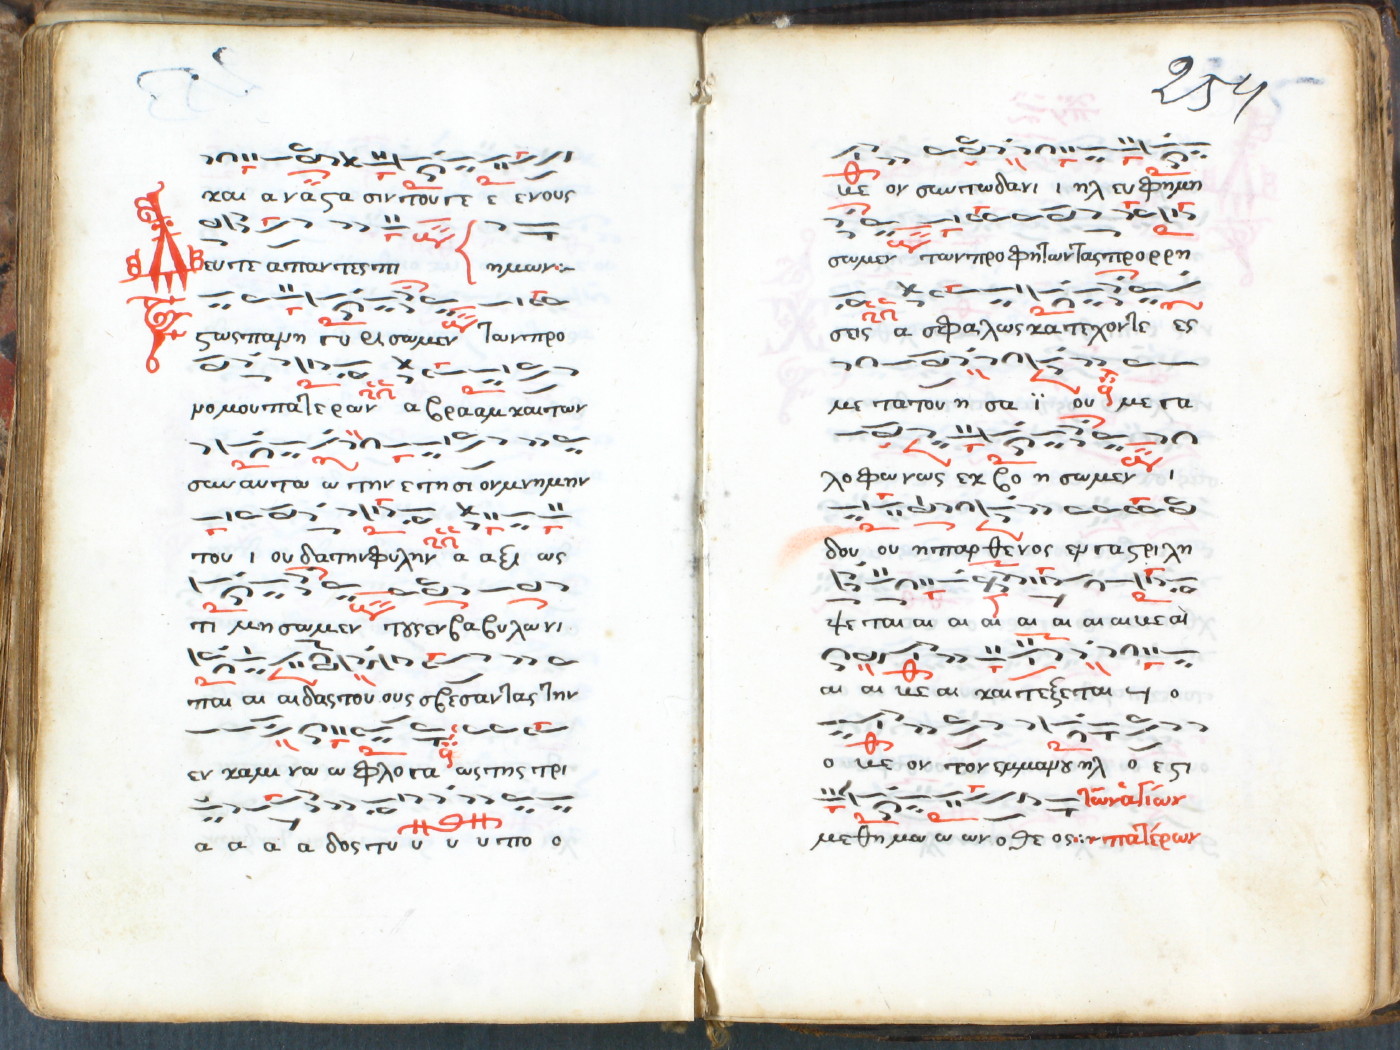 και α να ζα σιν του γε ε ενους
ευτε απαντες πι
ημων:~
ζως πανη γυ ρι σωμεν των προ
νομου πατερων α βρααμ και των
συν αυτω ω την ετησι ον μνημην
του ι ου δα την φυλην α α ξι ως
τι μησωμεν τους εν βαβυλωνι
παι αι αι δας του ους σβεσαντας την
εν καμι νω ω φλο γα ως της τρι
α α α α δος τυ υ υ υ πο ο
254
υε ον συν τω δανι ι ηλ ευ φημη
σωμεν των προφητων τας προρρη
σεις α σφα λως κατεχοντε ες
με τα του η σα ϊ ου με γα
λο φω νως εκ βο η σωμεν ι
δου ου η παρθενος εν γαστρι λη
ψε ται αι αι αι αι αι αι αι υε αι
αι αι υε αι και τεξεται υι ο
ο υε ον τον εμμανουηλ ο ε στι
των αγίων
με θη μω ω ων ο θε ος:
πατέρων